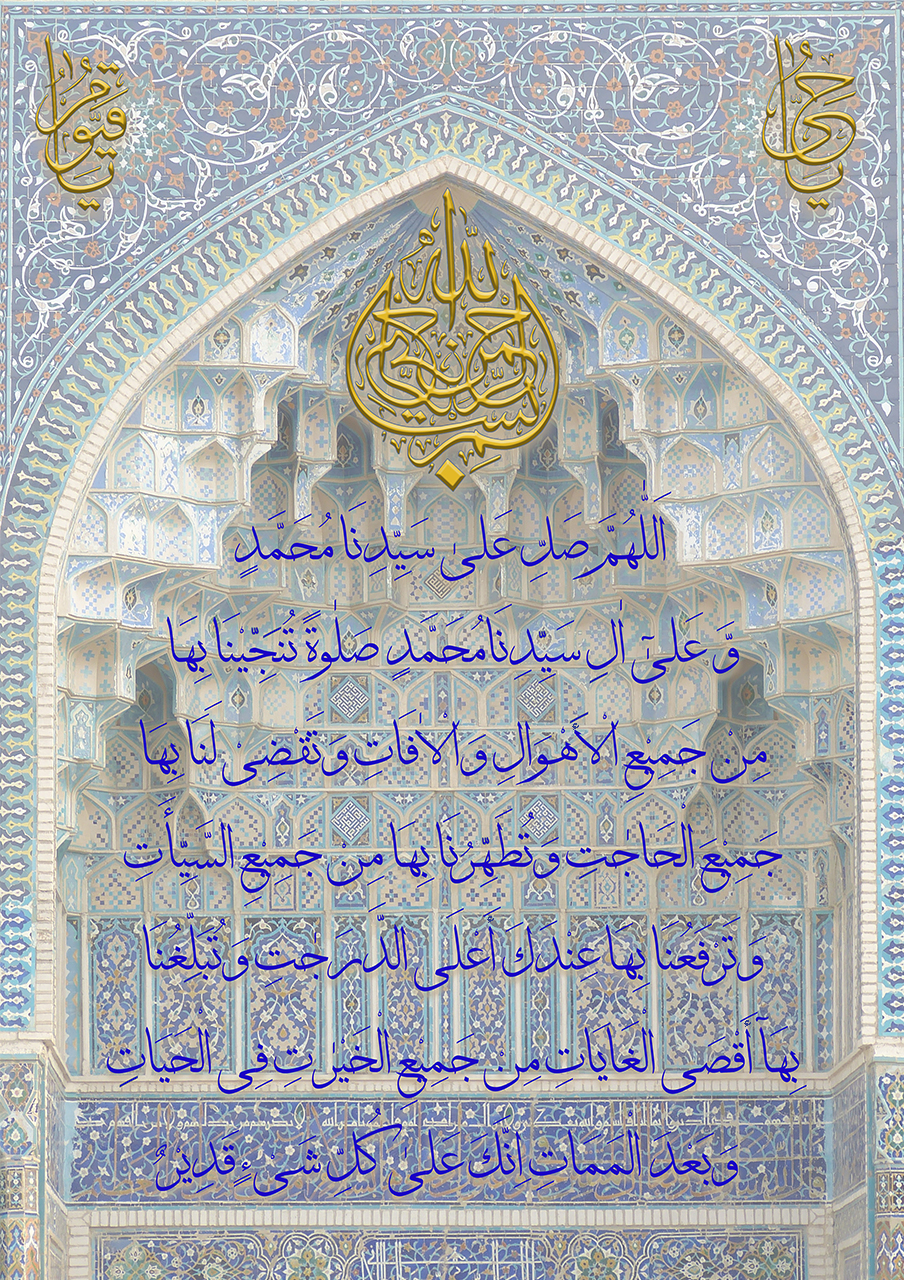 يا حي
يا قيوم
بسم الله الرحمن الرحيم
اَللّٰهُمَّ صَلِّ عَلىٰ سَيِّدِنَا مُحَمَّدٍ
وَّ عَلىٰٓ اٰلِ سَيِّدِنَا مُحَمَّدٍ صَلٰوةً تُنَجِّيْنَا بِهَا
مِنْ جَمِيْعِ الْأَهْوَالِ وَالْاٰفَاتِ وَتَقْضِىْ لَنَا بِهَا
جَمِيْعَ الْحَاجٰتِ وَتُطَهِّرُنَا بِهَا مِنْ جَمِيْعِ السَّيِّأٰتِ
وَتَرْفَعُنَا بِهَا عِنْدَكَ أَعْلَى الدَّرَجٰتِ وَتُبَلِّغُنَا
بِهَآ أَقْصَى الْغَايَاتِ مِنْ جَمِيْعِ الْخَيْرٰتِ فِى الْحَيَاتِ
وَبَعْدَ الْمَمَاتِ اِنَّكَ عَلىٰ كُلِّ شَىْءٍ قَدِيْرٌ